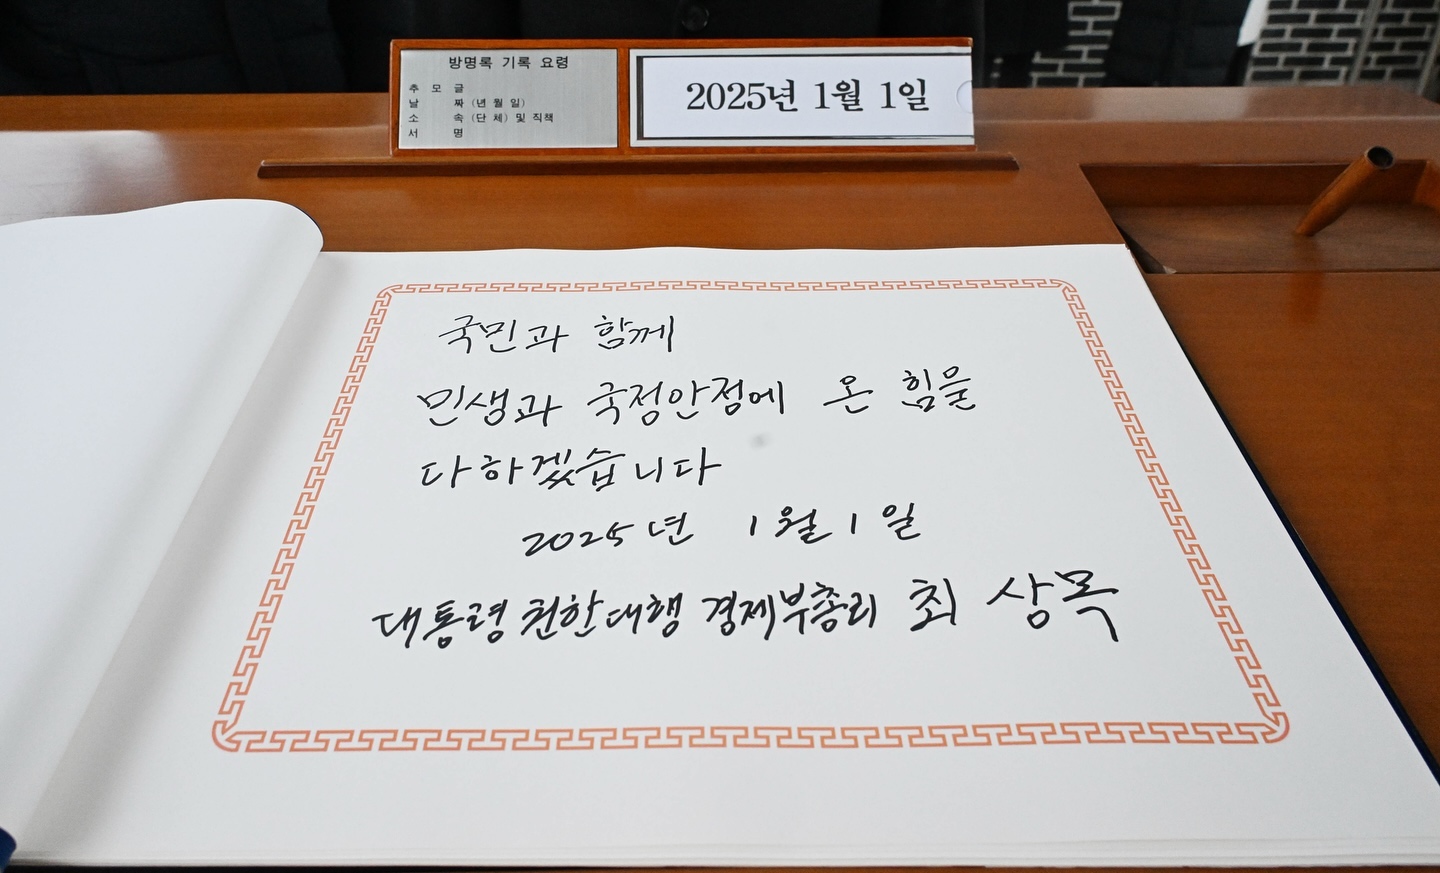 방명록 기록 요령
추 모 글
날 짜 (년 월 일)
소 속 (단 체) 및 직책
서 명
2025년 1월 1일
국민과 함께
민생과 국정안정에 온 힘을
다하겠습니다
2025년 1월 1일
대통령 권한대행 경제부총리 최 상목